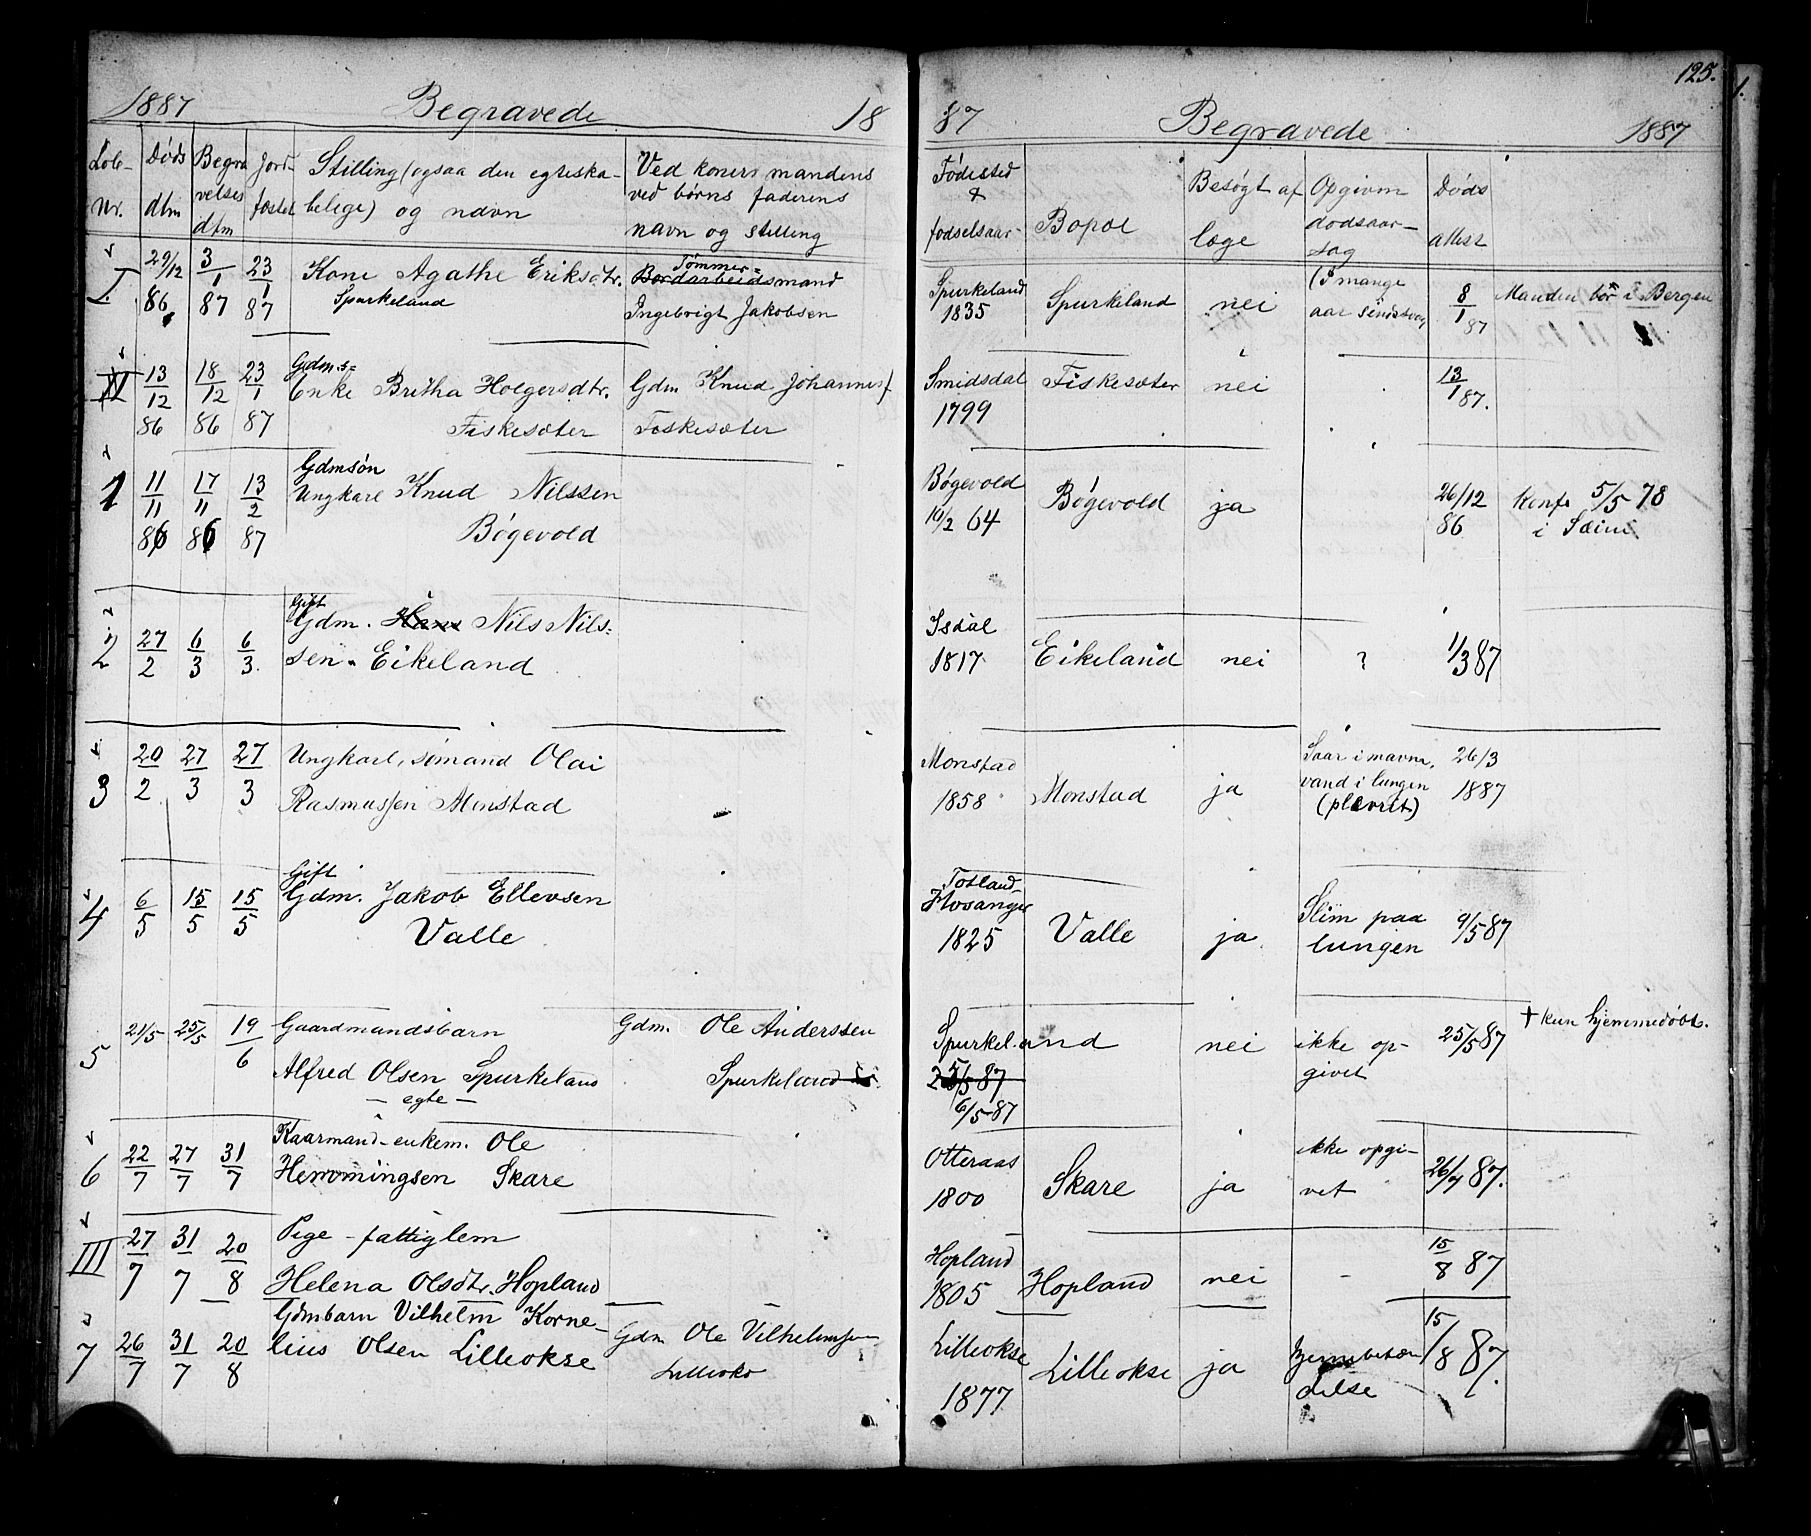 125.
1887 Begravede 18
87 Begravede 1887
Løbe- Døds Begra Jord- Stilling (ogsaa den egteska- Ved koners mandens
nr. dtm velses fæstet belige) og navn ved børns faderens
dtm navn og stilling
Fødested Bopæl Besøgt af Opgiven Døds
& læge dødsaar- attest
fødselsaar- sag
I. 29/12 86. 3/1 87 23/1 87 Kone Agathe Eriksdtr. Bordarbeidsmand
Tømmer=
Spurkeland Ingebrigt Jakobsen
Spurkeland 1835 Spurkeland nei (I mange 8/1 87 Manden bor i Bergen
aar sindssvag
II 13/12 86 18/12 86 23/1 87 Gdm.s=
Enke Britha Holgersdtr. Gdm Knud Johannes
Fiskesæter Foskesæter
Smidsdal 1799 Fiskesæter nei 13/1 87.
1 11/11 86 17/11 86 13/2 87 Gdmsøn
Ungkarl Knud Nilssen
Bøgevold
Bøgevold 10/2 64 Bøgevold ja 26/12 86 Konf. 5/5 78
i Sæim
2 27/2 6/3 6/3. Gift
Gdm. Hans Nils Nils=
sen. Eikeland
Isdal 1817 Eikeland nei ? 1/3 87
3 20/2 27/3 27/3 Ungkarl, sømand Olai
Rasmussen Monstad
Monstad 1858 Monstad ja Saar i maven, 26/3
vand i lungen 1887
(plevrit)
4 6/5 15/5 15/5 Gift
Gdm. Jakob Ellevsen
Valle
Totland
Hosanger 1825 Valle ja Slim paa 9/5 87
lungen
5 21/5 25/5 19/6 Gaardmandsbarn Gdm. Ole Anderssen
Alfred Olsen Spurkeland Spurkeland
- egte -
Spurkeland nei ikke op- 25/5 87 + kun hjemmedøbt.
25/5 87 givet
6/5 87
6 22/7 27/7 31/7 Kaarmand-enkem. Ole
Hemmingsen Skare
Otteraas 1800 Skare ja ikke opgi- 26/7 87.
vet
III 27/7 31/7 20/8 Pige - fattiglem
Helena Olsdtr. Hopland
Hopland 1805 Hopland nei - 15/8 87
7 26/7 31/7 20/8 Gdmbarn Vilhelm Korne-
lius Olsen Lilleokse Gdm Ole Vilhelmsen
Lilleoks
Lilleokse 1877 Lilleokse ja hjernebetæn 15/8 87.
delse